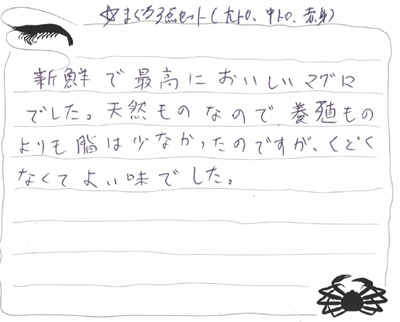 ☆まぐろ3点セット(大トロ、中トロ、赤身)
新鮮で最高においしいマグロ
でした。天然ものなので養殖もの
よりも脂は少なかったのですが、くどく
なくてよい味でした。